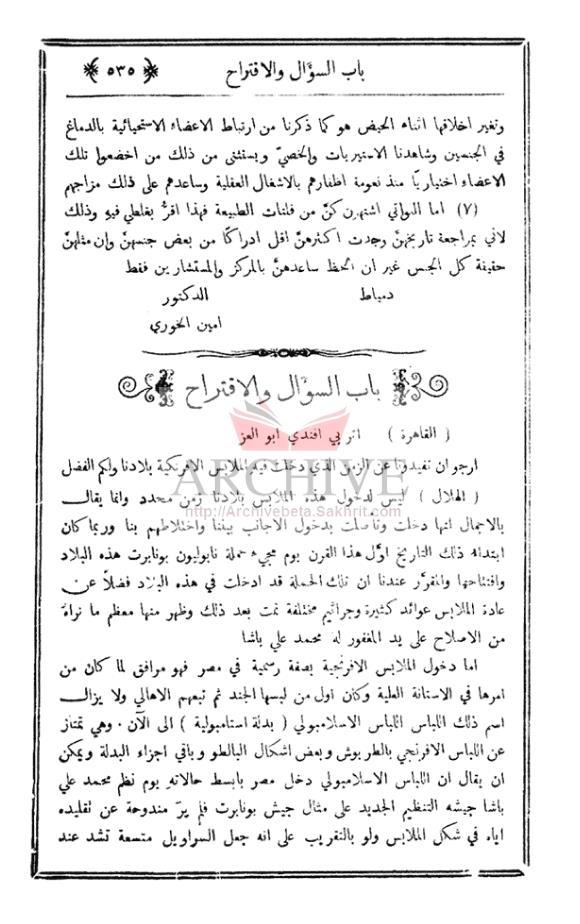 باب السؤال والاقتراح ﴿ ٥٣٥ ﴾
وتغير اخلاقها اثناء الحيض هو كما ذكرنا من ارتباط الاعضاء الاستحيائية بالدماغ
في الجنسين وشاهدنا الاستيريات والخصيّ ويستثنى من ذلك من اخضعوا تلك
الاعضاء اختياريًّا منذ نعومة اظفارهم بالاشغال العقلية وساعدهم على ذلك مزاجهم
(٧) اما اللواتي اشتهرن كنّ من فلتات الطبيعة فهذا اقرُّ بغلطي فيهِ وذلك
لاني بمراجعة تاريخهنّ وجدت اكثرهنّ اقل ادراكًا من بعض جنسهنّ وإن مثلهنّ
حقيقة كل الجنس غير ان الحظ ساعدهنّ بالمركز والمستشارين فقط
دمياط الدكتور
امين الخوري
باب السؤال والاقتراح
ARCHIVE
http://Archivebeta.Sakhrit.com
( القاهرة ) اتربي افندي ابو العز
ارجو ان تفيدونا عن الزمن الذي دخلت فيهِ الملابس الافرنكية بلادنا ولكم الفضل
( الهلال ) ليس لدخول هذه الملابس بلادنا زمن محدد وانما يقال
بالاجمال انها دخلت وتأصلت بدخول الاجانب بيننا واختلاطهم بنا وربما كان
ابتداء ذلك التاريخ اوَّل هذا القرن يوم مجيء حملة نابوليون بونابرت هذه البلاد
وافتتاحها والمقرَّر عندنا ان تلك الحملة قد ادخلت في هذه البلاد فضلاً عن
عادة الملابس عوائد كثيرة وجراثيم مختلفة نمت بعد ذلك وظهر منها معظم ما نراهُ
من الاصلاح على يد المغفور له محمد علي باشا
اما دخول الملابس الافرنجية بصفة رسمية في مصر فهو مرافق لما كان من
امرها في الاستانة العلية وكان اول من لبسها الجند ثم تبعهم الاهالي ولا يزال
اسم ذلك اللباس اللباس الاسلامبولي ( بدلة استامبولية ) الى الآن . وهي تمتاز
عن اللباس الافرنجي بالطربوش وبعض اشكال البالطو وباقي اجزاء البدلة ويمكن
ان يقال ان اللباس الاسلامبولي دخل مصر بابسط حالاته يوم نظم محمد علي
باشا جيشه التنظيم الجديد على مثال جيش بونابرت فلم يرَ مندوحة عن تقليده
اياه في شكل الملابس ولو بالتقريب على انه جعل السراويل متسعة تشد عند